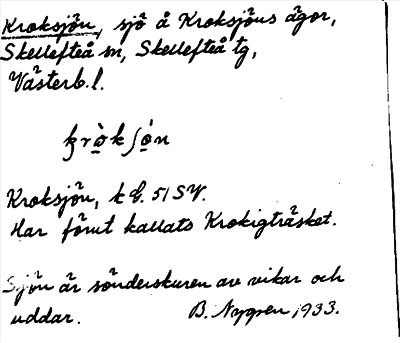 Kroksjön, sjö å Kroksjöns ägor,
Skellefteå sn, Skellefteå tg,
Västerb. l.
Kroksjön, k G. 51 SV.
Har förut kallats Krokigträsket.
Sjön är sönderskuren av vikar och
uddar. B. Nygren, 1933.